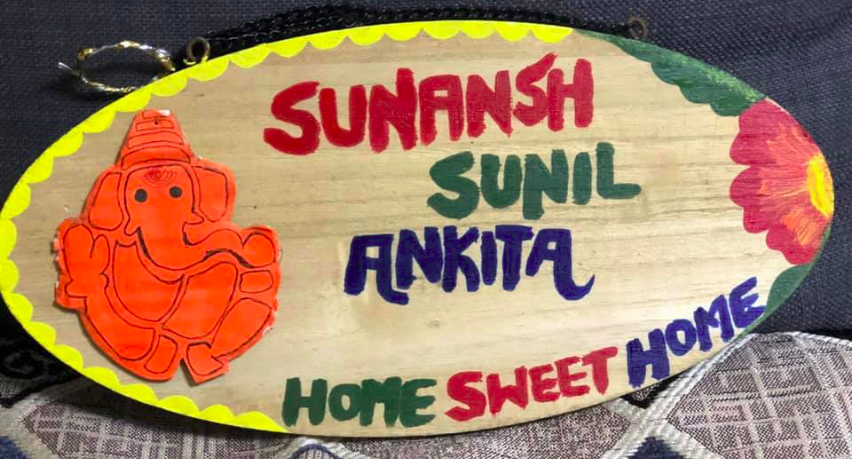 SUNANSH
SUNIL
ANKITA
HOME SWEET HOME